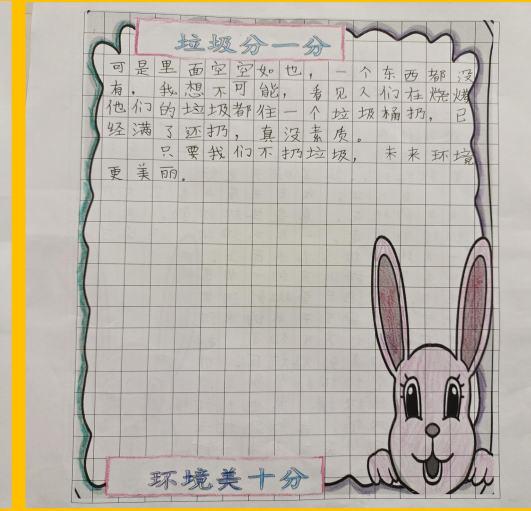 垃圾分一分
可是里面空空如也，一个东西都没
有，我想不可能，看见人们在烧烤
他们的垃圾都往一个垃圾桶扔，已
经满了还扔，真没素质。
只要我们不扔垃圾，未来环境
更美丽。
环境美十分